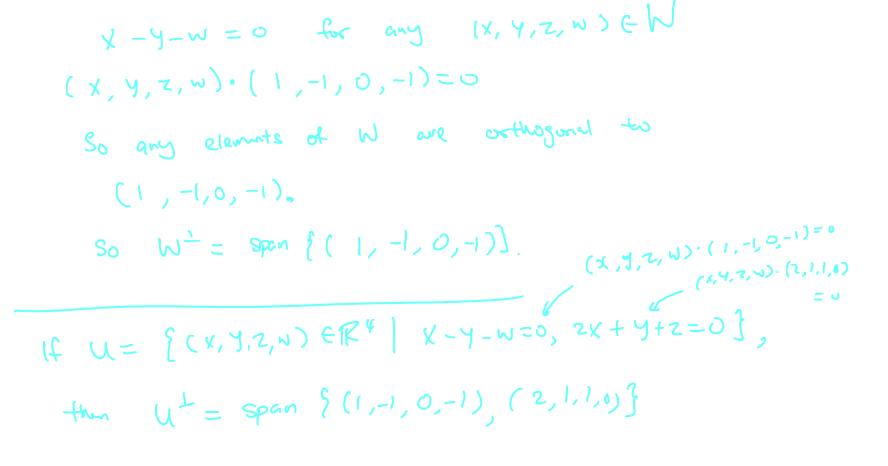 x - y - w = 0 for any (x, y, z, w) ∈ W
(x, y, z, w) · (1, -1, 0, -1) = 0
So any elements of W are orthogonal to
(1, -1, 0, -1).
So W⊥ = span {(1, -1, 0, -1)}.
(x, y, z, w) · (1, -1, 0, -1) = 0
(x, y, z, w) · (2, 1, 1, 0)
= 0
If U = {(x, y, z, w) ∈ ℝ⁴ | x - y - w = 0, 2x + y + z = 0},
then U⊥ = span {(1, -1, 0, -1), (2, 1, 1, 0)}